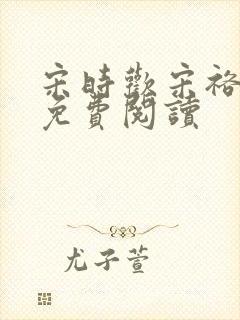 宋時歡宋裕
免費閱讀
尤子萱